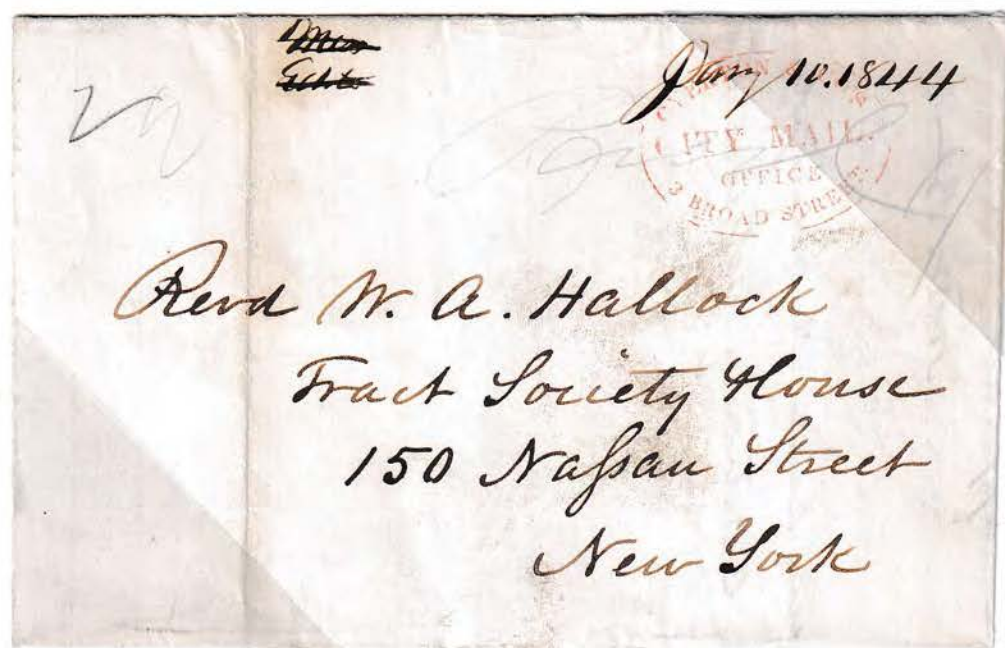 Jany 10. 1844
CITY MAIL
OFFICE
3 BROAD STREET.
Revd W. A. Hallock
Tract Society House
150 Naſsau Street
New York